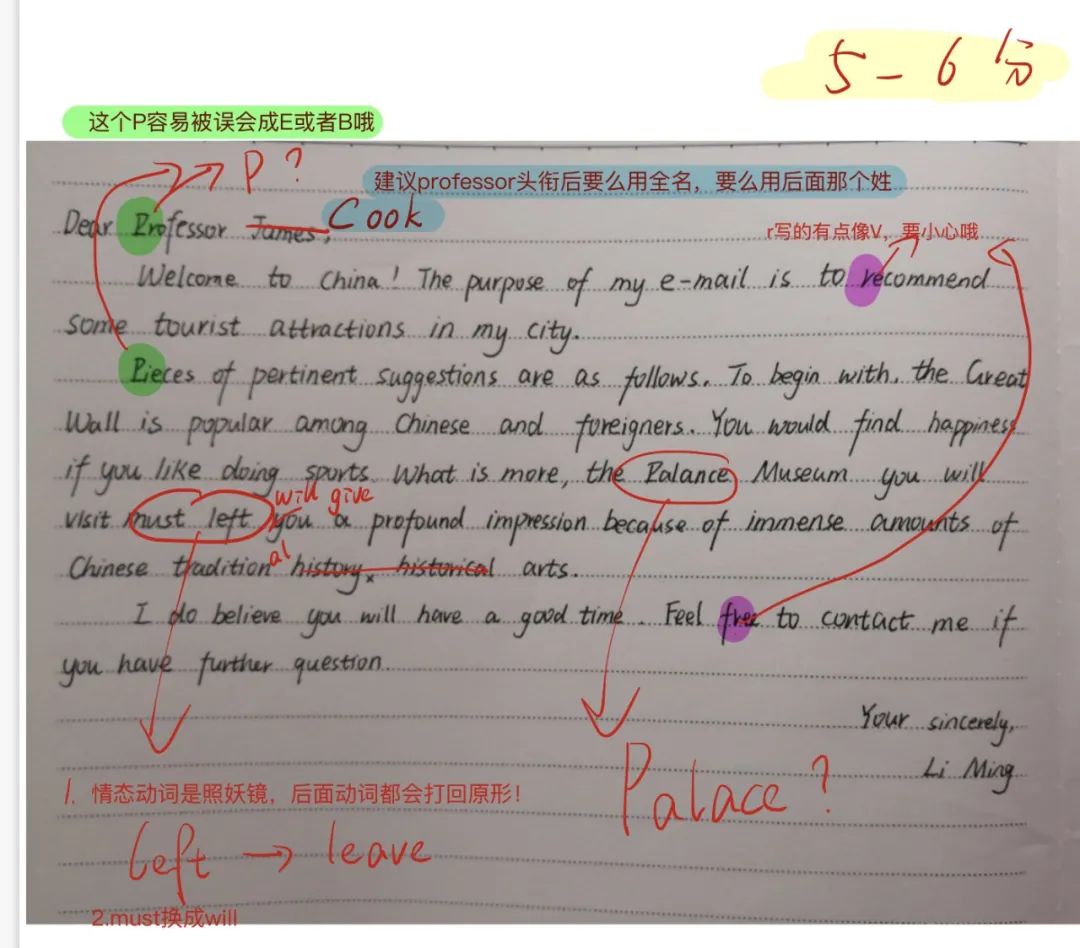 5-6分
这个P容易被误会成E或者B哦
P?
建议professor头衔后要么用全名，要么用后面那个姓
Cook
Dear Professor James,
r写的有点像V，要小心哦
Welcome to China! The purpose of my e-mail is to recommend
some tourist attractions in my city.
Pieces of pertinent suggestions are as follows. To begin with, the Great
Wall is popular among Chinese and foreigners. You would find happiness
if you like doing sports. What is more, the Palance Museum you will
will give
visit must left you a profound impression because of immense amounts of
al
Chinese tradition history, historical arts.
I do believe you will have a good time. Feel free to contact me if
you have further question.
Your sincerely,
Li Ming
1. 情态动词是照妖镜，后面动词都会打回原形！
Palace?
left → leave
2.must换成will